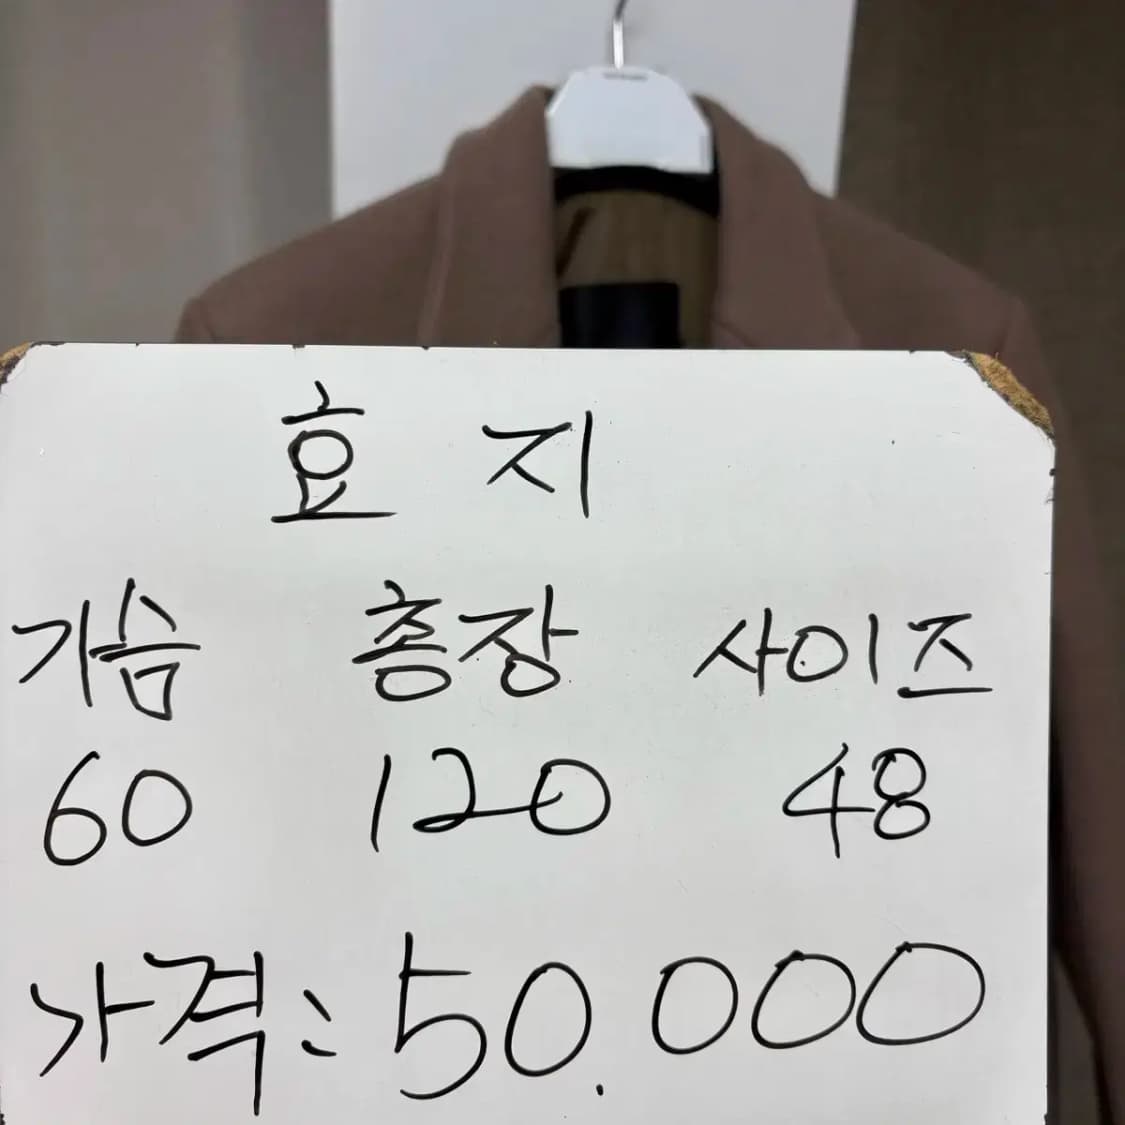 효지
가슴 총장 사이즈
60 120 48
가격: 50.000